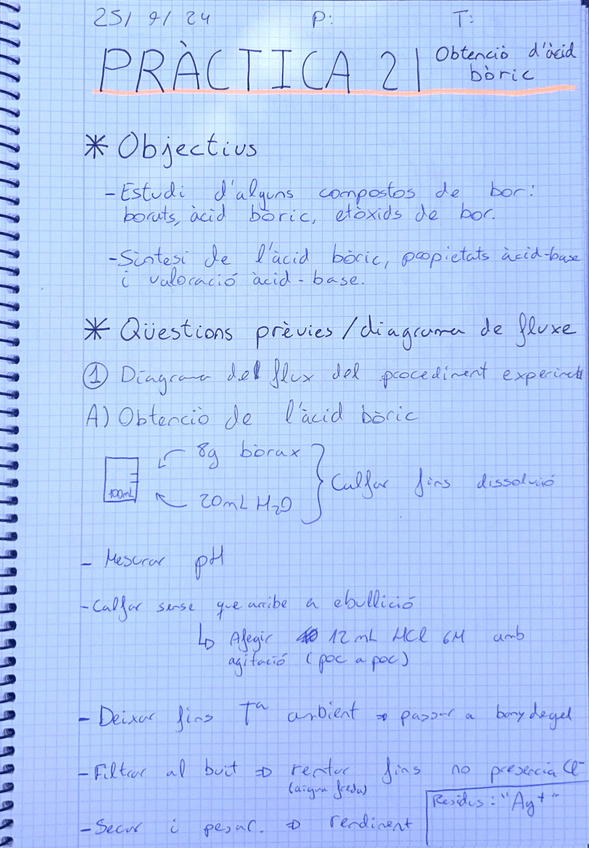 25/ 9/ 24 P: T:
PRÀCTICA 2 | Obtenció d'àcid
bòric
* Objectius
- Estudi d'alguns compostos de bor:
borats, àcid bòric, etòxids de bor.
- Síntesi de l'àcid bòric, propietats àcid-base
i valoració àcid-base.
* Qüestions prèvies/diagrama de fluxe
① Diagrama del flux del procediment
A) Obtenció de l'àcid bòric
8g bòrax
100mL
20mL H₂O
Calfar fins dissolució
- Mesurar pH
- Calfar sense que arribe a ebullició
↳ Afegir 12 mL HCl 6M amb
agitació (poc a poc)
- Deixar fins Tª ambient ⇒ passar a bany de gel
- Filtrar al buit ⇒ rentar fins no presència Cl⁻
(aigua freda)
Residus: "Ag+"
- Secar i pesar. ⇒ rendiment